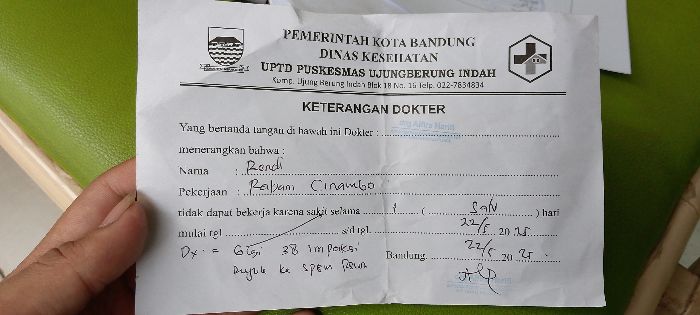 PEMERINTAH KOTA BANDUNG
DINAS KESEHATAN
UPTD PUSKESMAS UJUNGBERUNG INDAH
Komp. Ujung Berung Indah Blok 18 No. 16 Telp. 022-7834834
KETERANGAN DOKTER
Yang bertanda tangan di bawah ini Dokter :
menerangkan bahwa :
Nama : Rendi
Pekerjaan : Cinambo
tidak dapat bekerja karena sakit selama 1 ( Satu ) hari
mulai tgl. s/d tgl. 22/5 20 25
Dx = Gigi 38 Impaksi
Bandung, 22/5 20 25
Rujuk ke